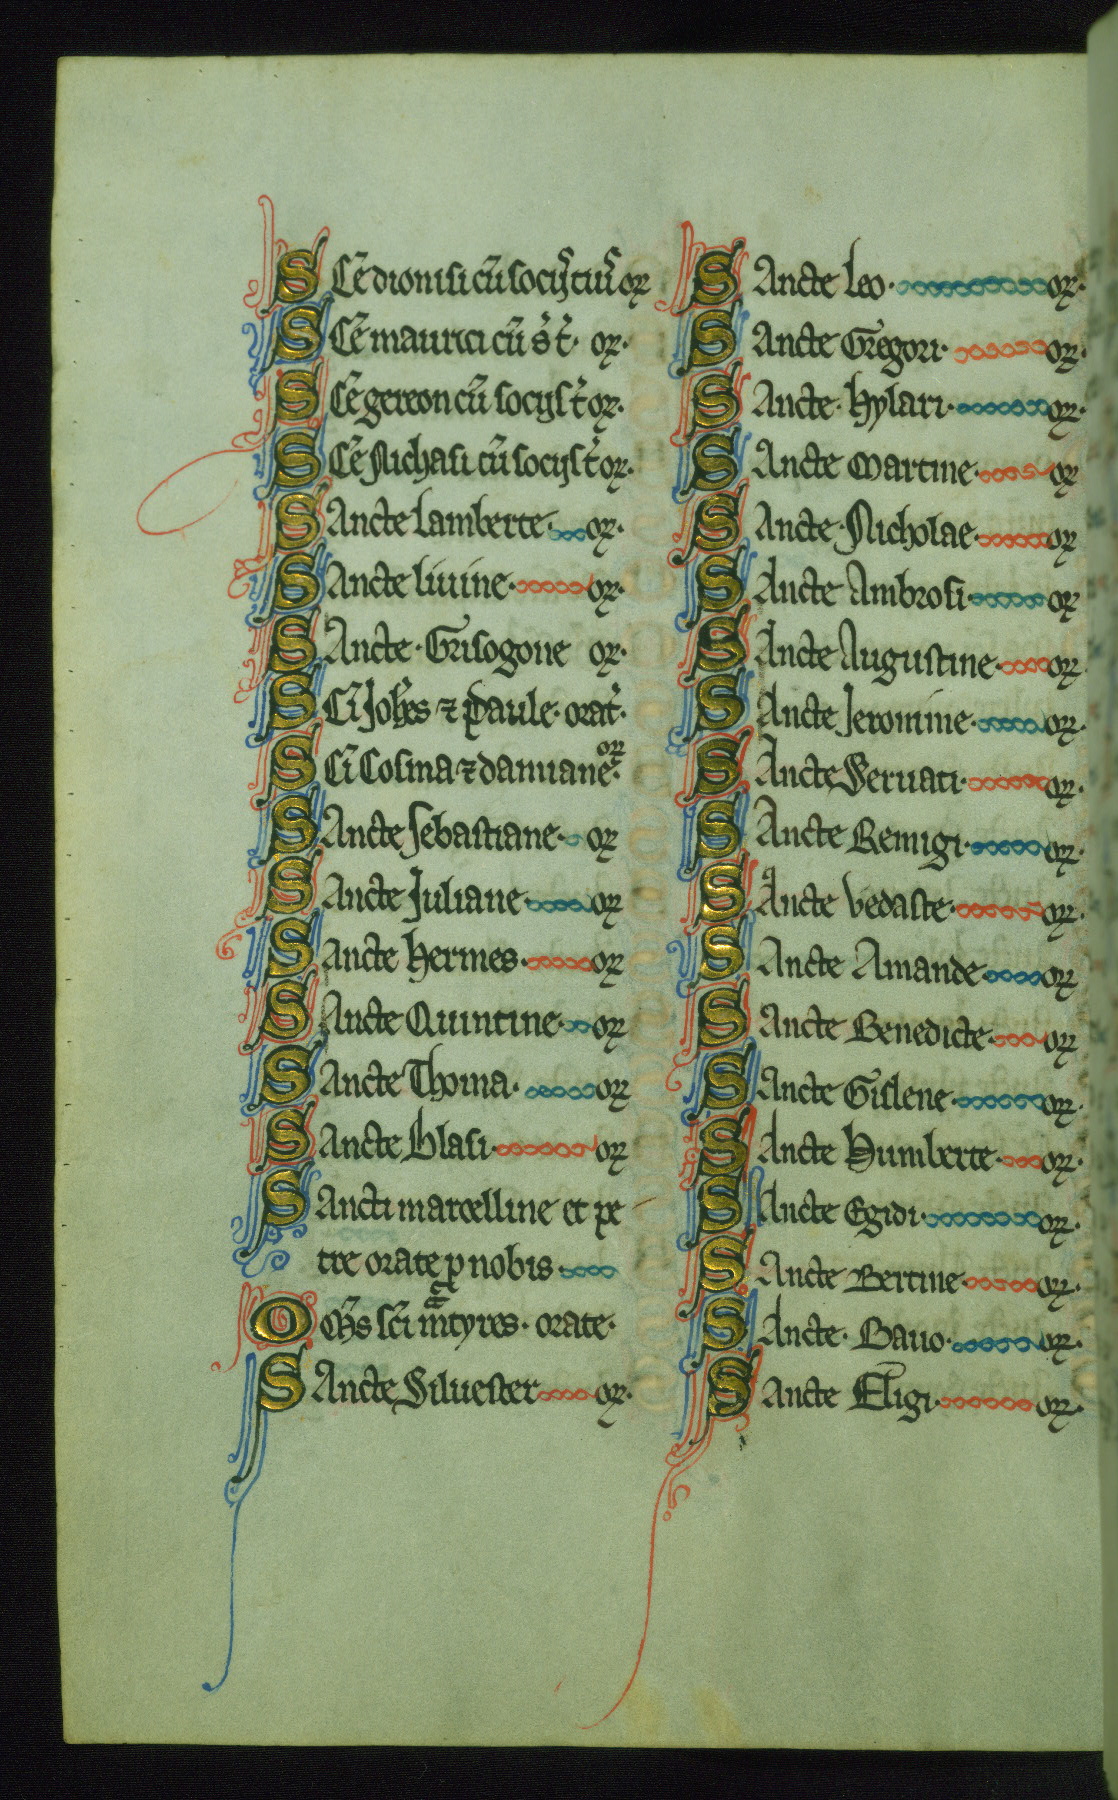 Sce dionisi cu socijs tuis or
Sce maurici cu s t. or.
Sce gereon cu socijs t or.
Sce Nichasi cu socijs t or.
Sancte lamberte. or.
Sancte liuine. or.
Sancte. Grisogone or.
Sci Johes ⁊ paule. orat.
Sci Cosma ⁊ damiane. or
Sancte sebastiane. or
Sancte Juliane or
Sancte hermes. or
Sancte Quintine. or
Sancte Thoma. or
Sancte blasi. or
Sancti marcelline et pe
tre orate p nobis.
Oms sci mrtyres. orate.
Sancte Siluester or.
Sancte leo. or.
Sancte Gregori. or.
Sancte. hylari. or.
Sancte Martine. or
Sancte. Nicholae. or
Sancte Ambrosi. or
Sancte Augustine. or
Sancte Jeronime. or.
Sancte Seruati. or.
Sancte Remigi. or.
Sancte vedaste. or.
Sancte Amande. or
Sancte Benedicte. or
Sancte Gislene. or.
Sancte Humberte. or.
Sancte Egidi. or.
Sancte Bertine. or.
Sancte. Bauo. or.
Sancte Eligi. or.